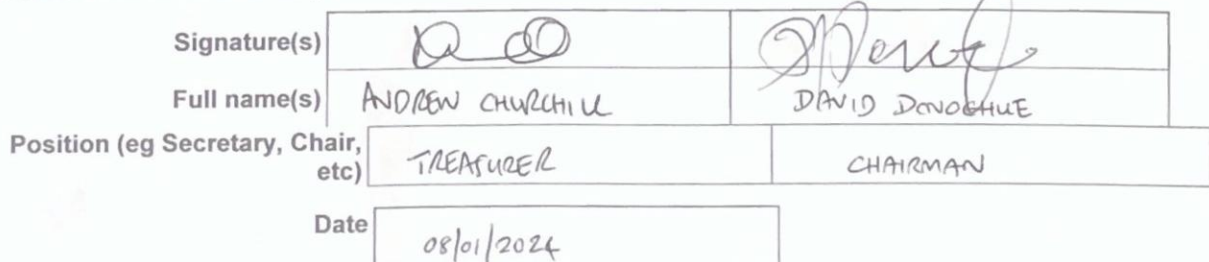 Signature(s)
Full name(s) ANDREW CHURCHILL DAVID DONOGHUE
Position (eg Secretary, Chair,
etc) TREASURER CHAIRMAN
Date 08/01/2024